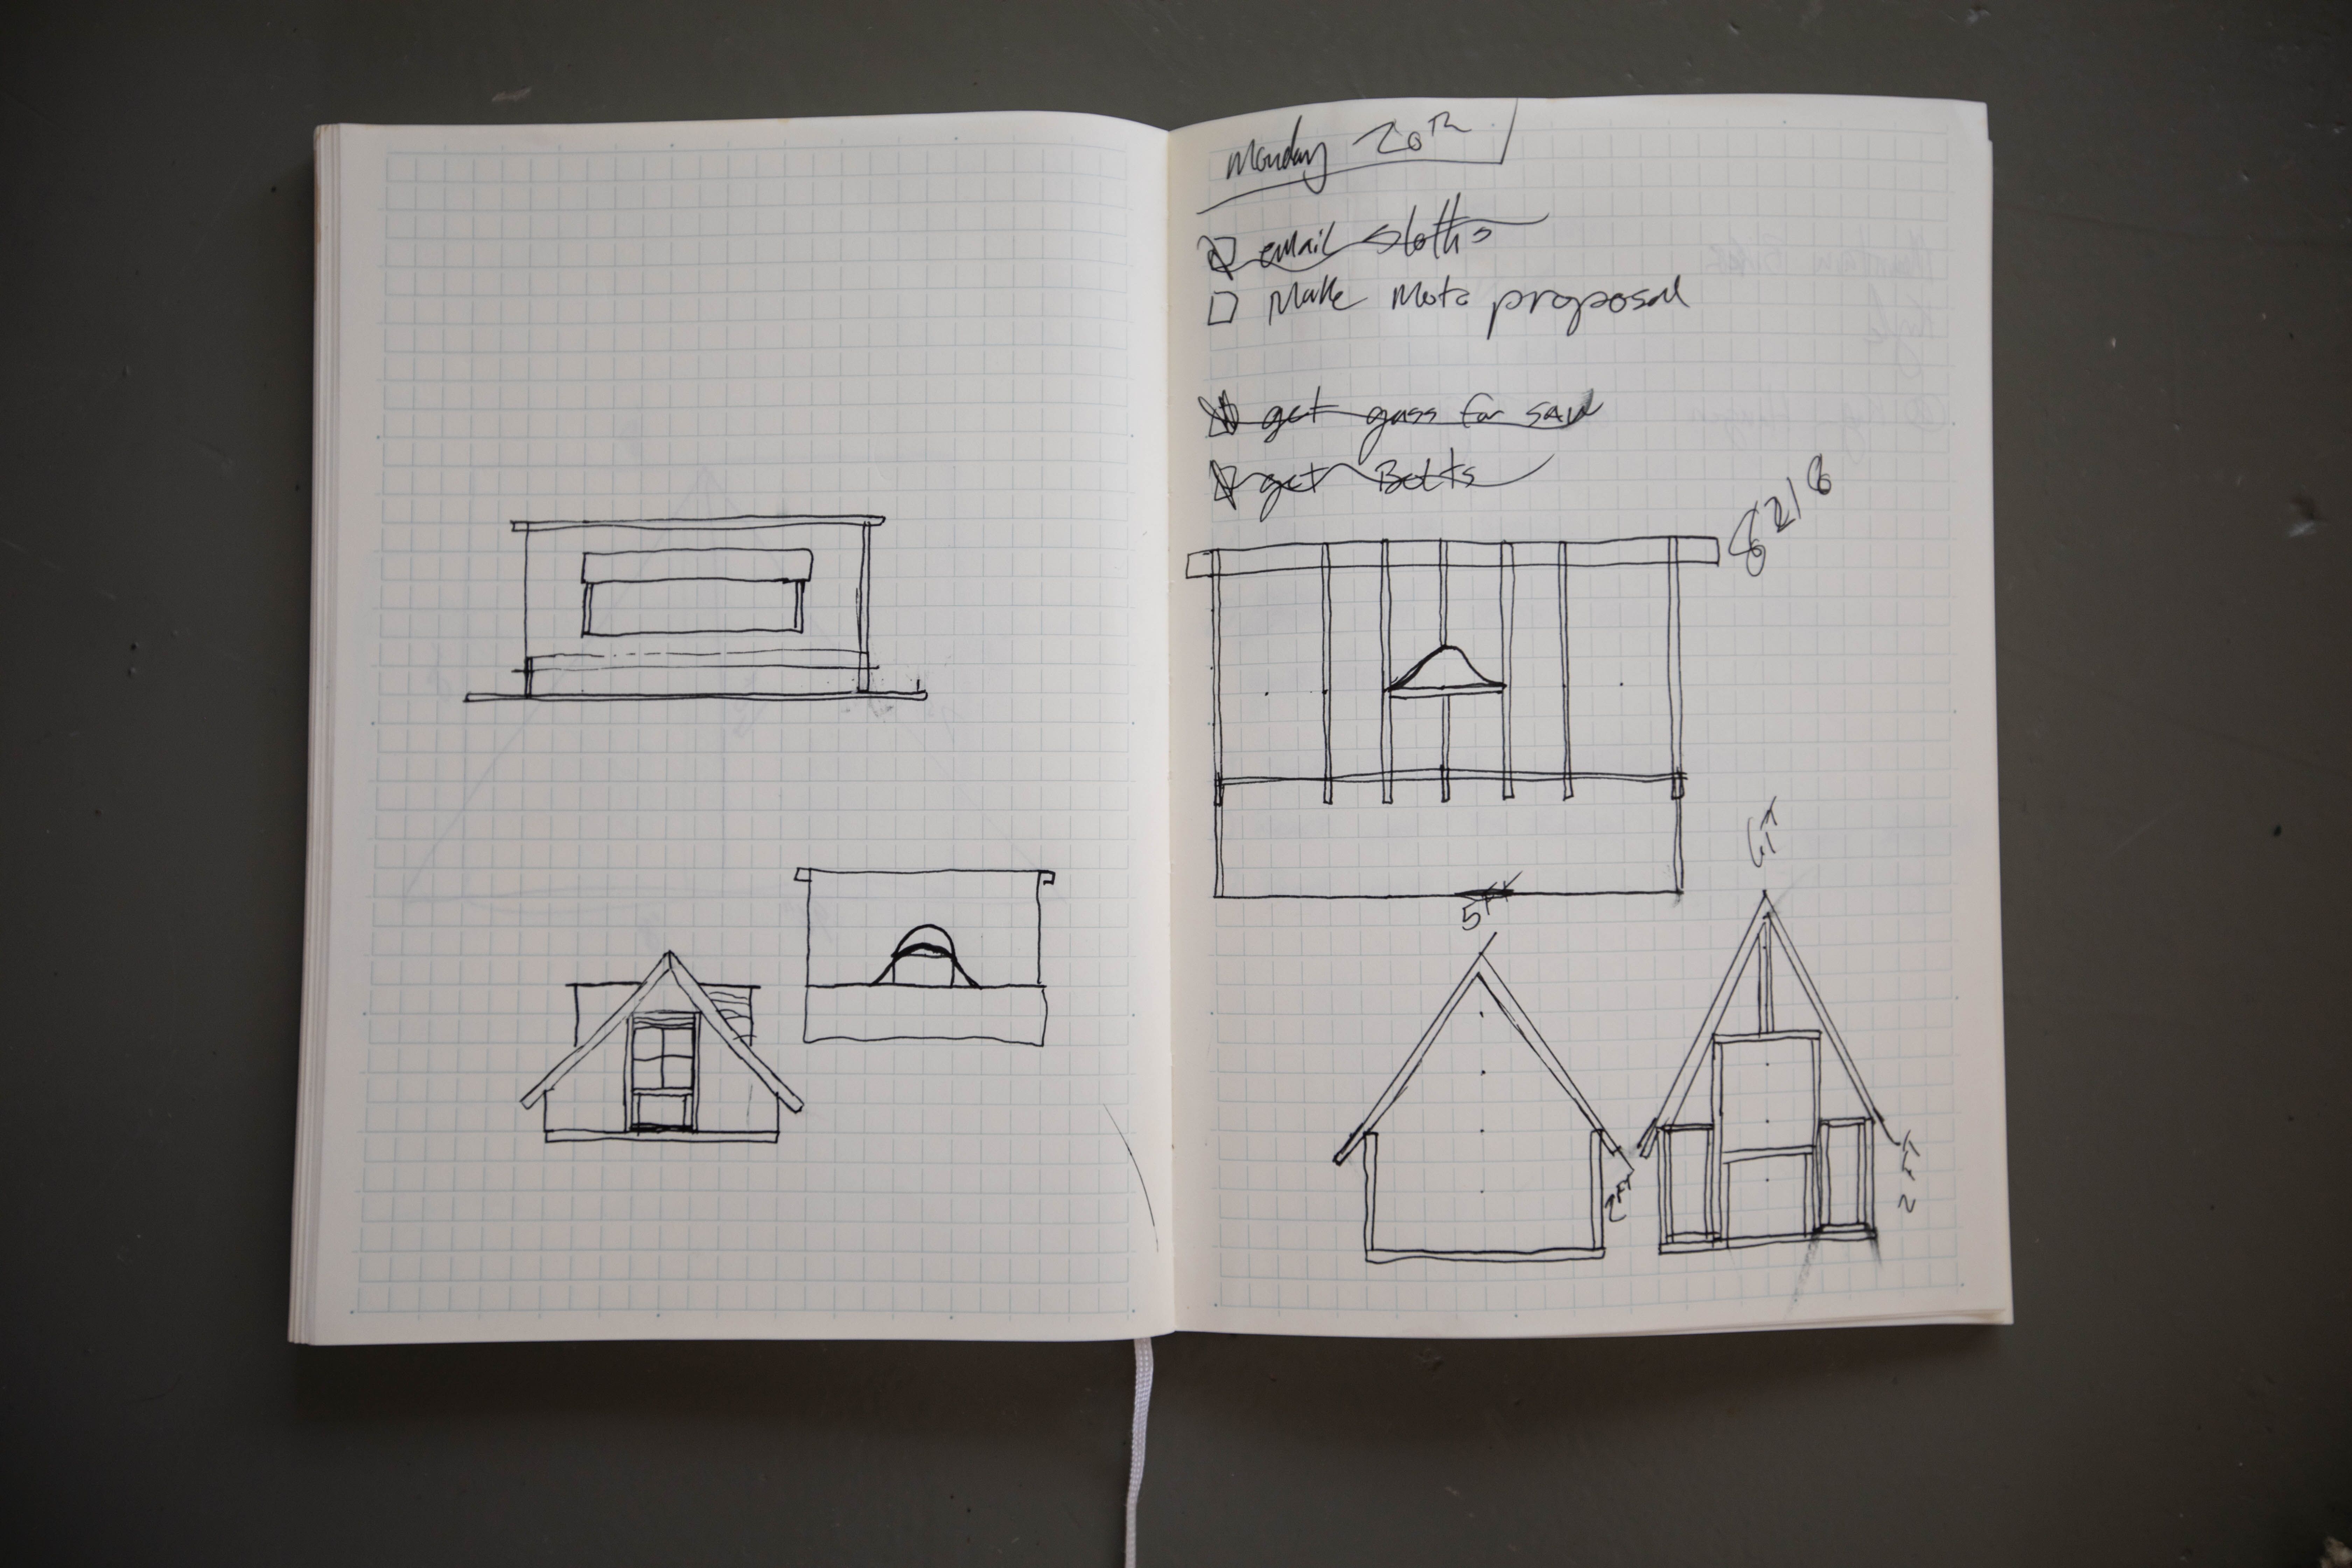 Monday 20th
email sloths
Make Moto proposal
get gass for saw
get Bolts
8 2/6
5FT
6FT
2FT
2FT